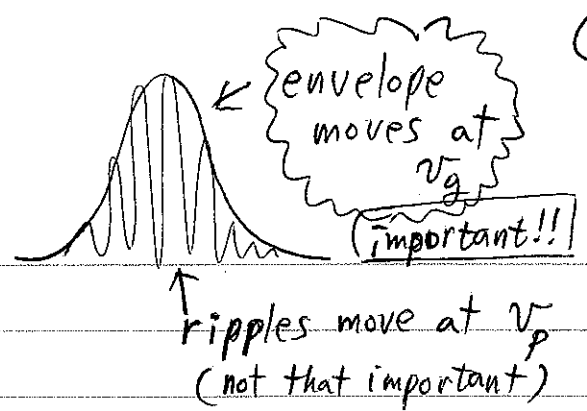 envelope
moves at
v_g
important!!
ripples move at v_p
(not that important)